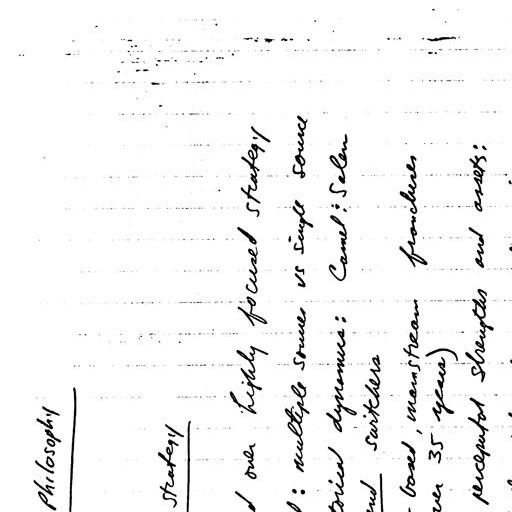 Philosophy
strategy
over highly focused strategy
: multiple sources vs single source
dynamics: Camel & Salem
switchers
based, mainstream franchises
35 years)
perceptual strengths and assets: